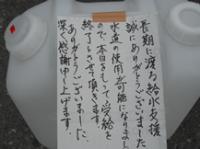 長期に渡る給水支援
誠にありがとうございました
水道の使用が可能になりました
ので、本日をもって学給を
終了とさせて頂きます。
ありがとうございました。
深く感謝申し上げます。